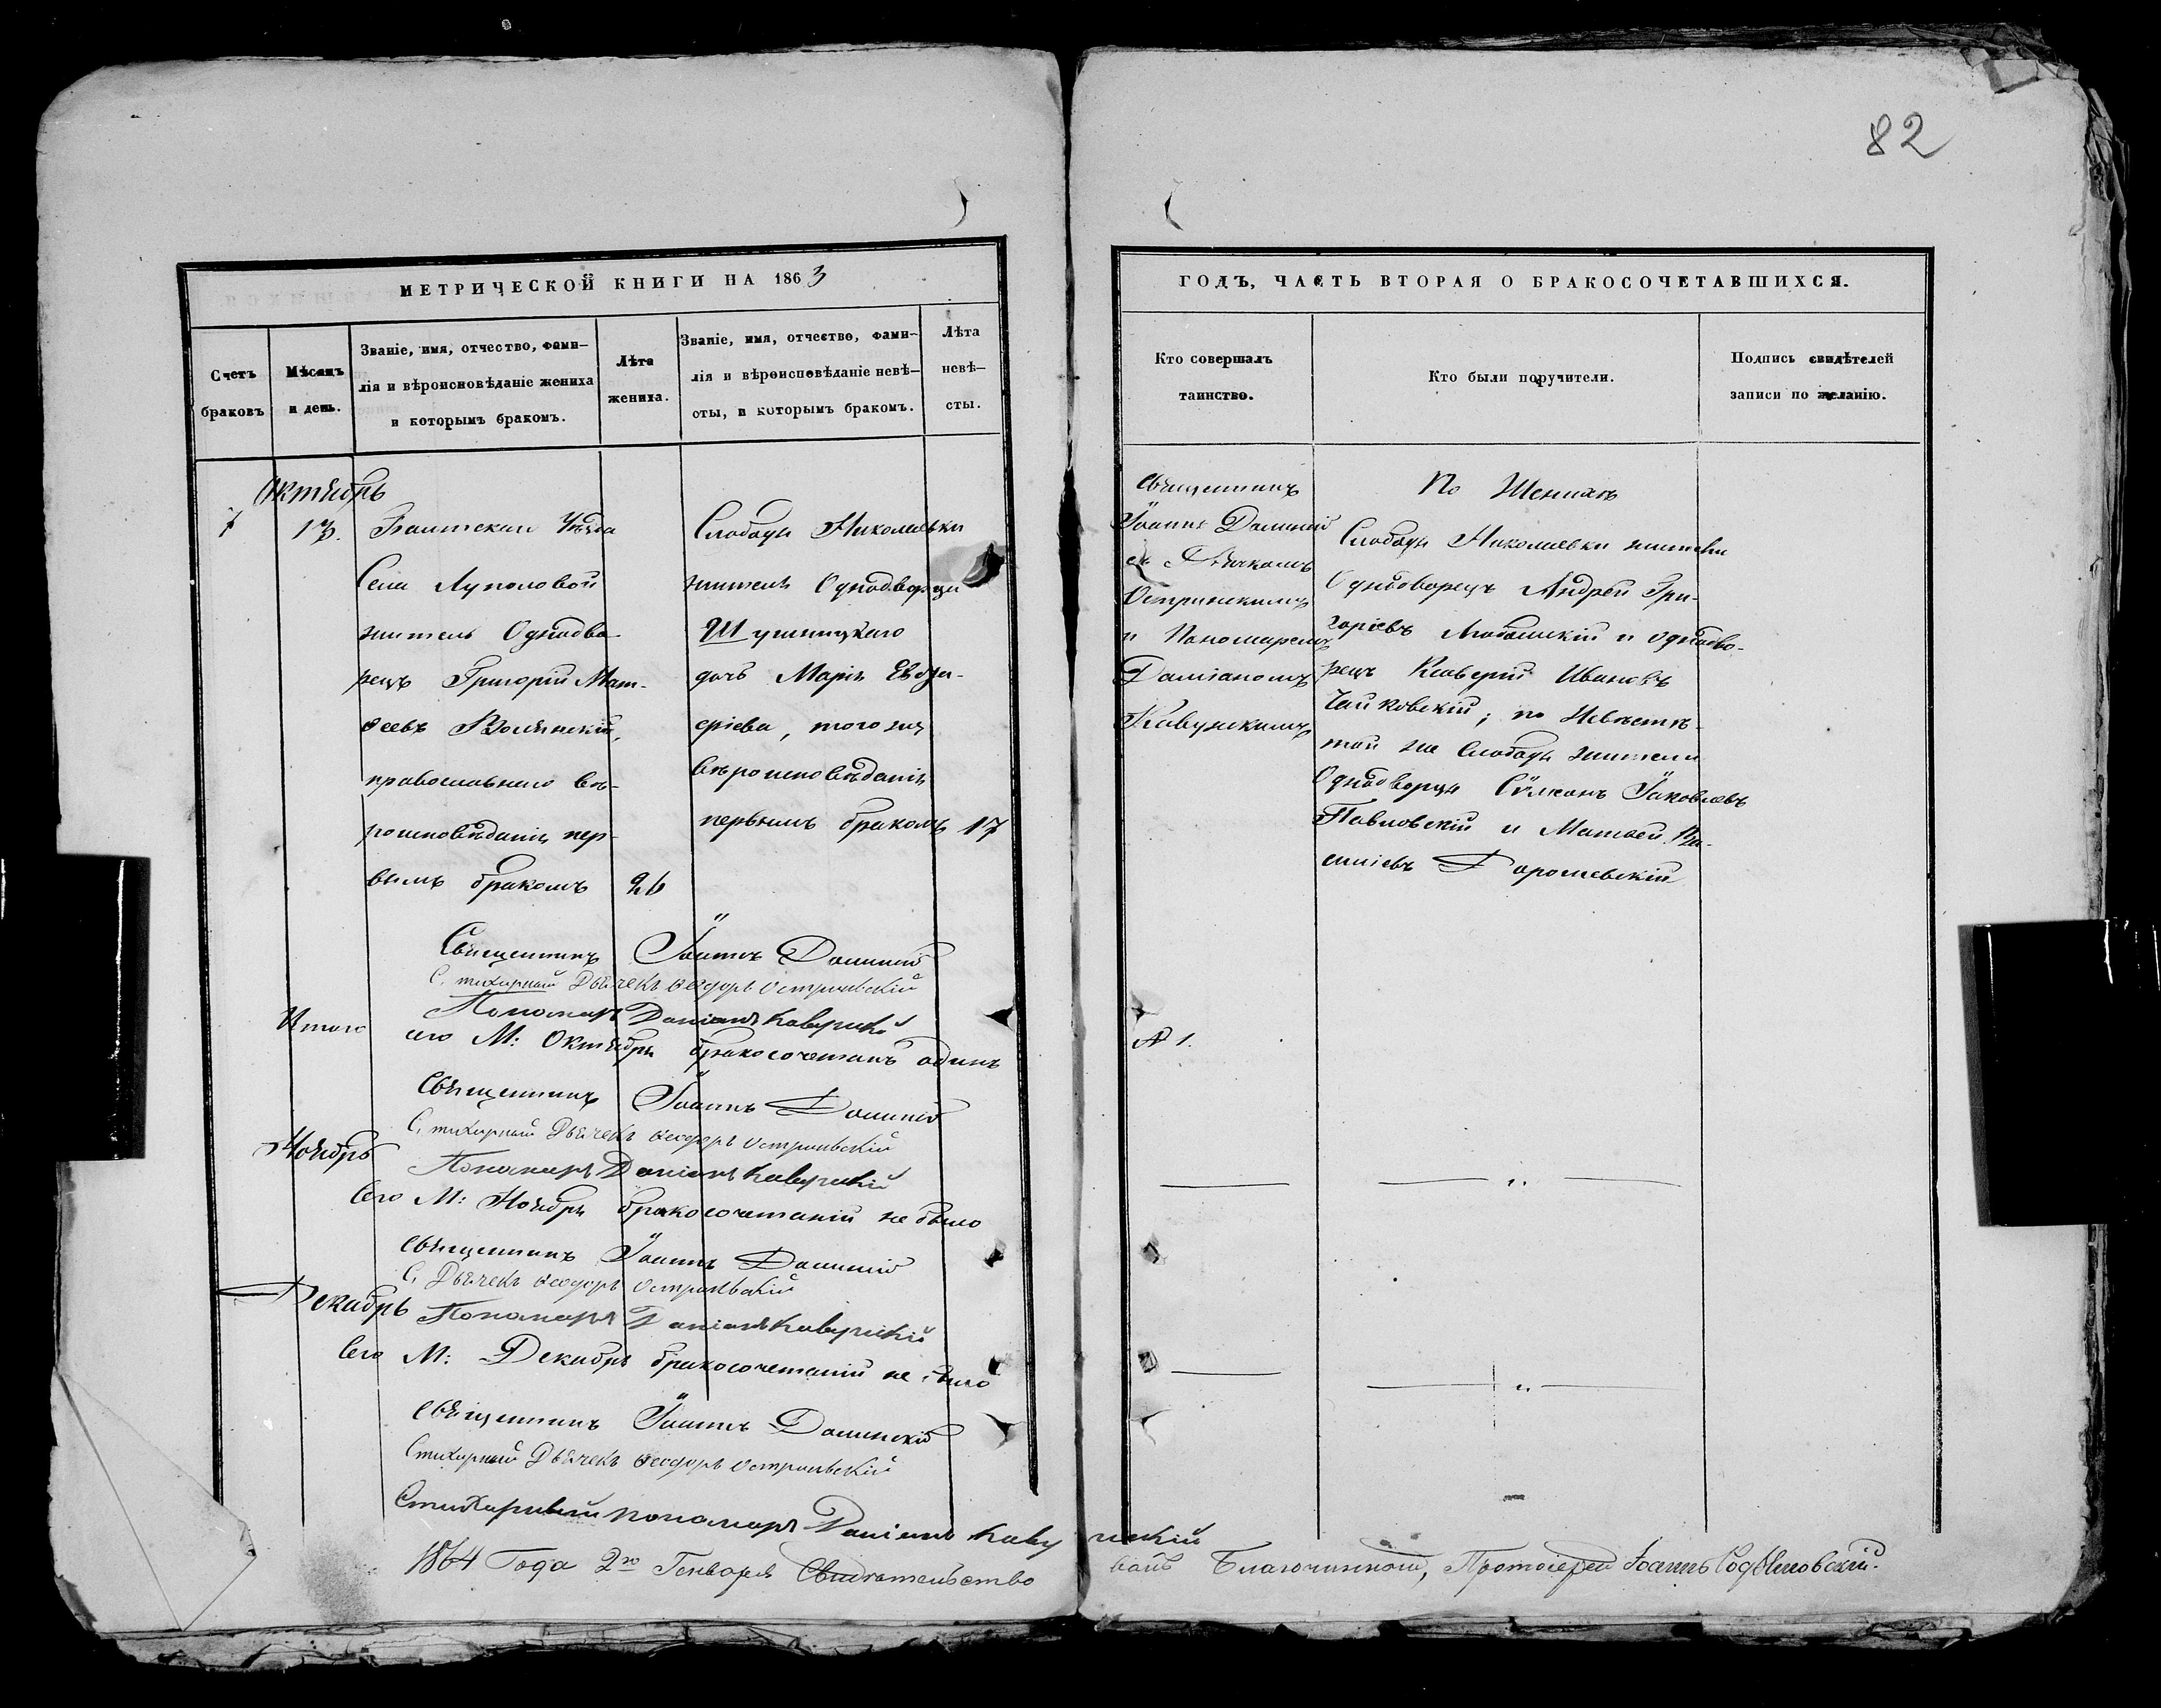 82
МЕТРИЧЕСКОЙ КНИГИ НА 1863
Счетъ
браковъ
Мѣсяцъ
и день.
Званіе, имя, отчество, фами-
лія и вѣроисповѣданіе жениха
и которымъ бракомъ.
Лѣта
жениха.
Званіе, имя, отчество, фами-
лія и вѣроисповѣданіе невѣ-
сты, и которымъ бракомъ.
Лѣта
невѣ-
сты.
Октябрь
7
13.
Балтскаго Уѣзда
Села Луполовой
житель Однодво-
рецъ Григорій Мат-
ѳеевъ Волянскій,
православнаго вѣ-
роисповѣданія пер-
вымъ бракомъ
26
Слободы Николаевки
жителя Однодворца
дочь Марія
того же
вѣроисповѣданія
первымъ бракомъ
17
Священникъ Іоаннъ
Стихарный Дьячекъ Ѳеодоръ
Пономарь Даміанъ
Итого
сего М: Октября бракосочетанъ одинъ
Священникъ Іоаннъ
Стихарный Дьячекъ Ѳеодоръ
Ноябрь
Пономарь Даміанъ
Сего М: Ноября бракосочетаній не было
Священникъ Іоаннъ
С. Дьячекъ Ѳеодоръ
Декабрь
Пономарь Даміанъ
Сего М: Декабря бракосочетаній не было
Священникъ Іоаннъ Долинскій
Стихарный Дьячекъ Ѳеодоръ
Стихарный пономарь Даміанъ
1864 Года 2го Генваря Свидѣтельство
ГОДЪ, ЧАСТЬ ВТОРАЯ О БРАКОСОЧЕТАВШИХСЯ.
Кто совершалъ
таинство.
Кто были поручители.
Подпись свидѣтелей
записи по желанію.
Священникъ
Іоаннъ
съ Дьячкомъ
и Пономаремъ
Даміаномъ
По Женихѣ
Слободы Николаевки жители
Однодворецъ Андрей Гри-
горіевъ и однодво-
рецъ Ксаверій Ивановъ
Чайковскій; по Невѣстѣ
той же Слободы жители
Однодворцы Сѵмеонъ Іаковлевъ
Павловскій и Матѳей Ва-
силіевъ
№ 1.
валъ Благочинный, Протоіерей Іоаннъ